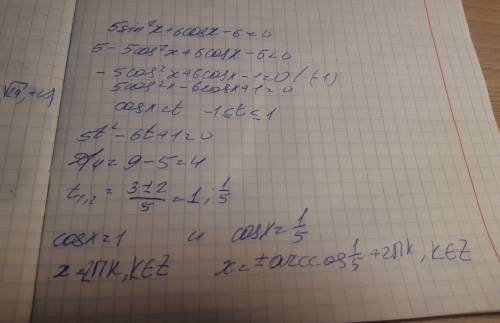 5sin²x+6cosx-6=0
5-5cos²x+6cosx-6=0
-5cos²x+6cosx-1=0 /·(-1)
5cos²x-6cosx+1=0
cosx=t -1≤t≤1
5t²-6t+1=0
D/4=9-5=4
t₁,₂=(3±2)/5=1; 1/5
cosx=1 и cosx=1/5
x=2πk, k∈Z x=±arccos 1/5+2πk, k∈Z